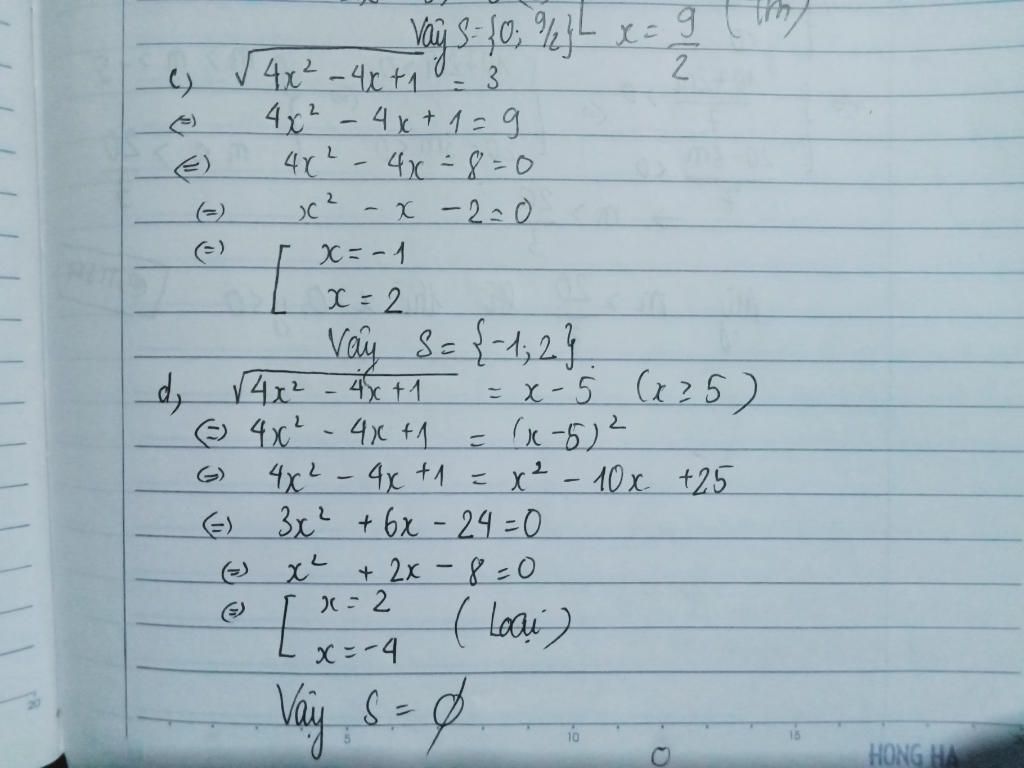 Vậy S={0; 9/2} [ x = 9/2 (tm)
c, √(4x² - 4x + 1) = 3
(=) 4x² - 4x + 1 = 9
(=) 4x² - 4x - 8 = 0
(=) x² - x - 2 = 0
(=) [ x = -1
x = 2
Vậy S = {-1; 2}.
d, √(4x² - 4x + 1) = x - 5 (x ≥ 5)
(=) 4x² - 4x + 1 = (x - 5)²
(=) 4x² - 4x + 1 = x² - 10x + 25
(=) 3x² + 6x - 24 = 0
(=) x² + 2x - 8 = 0
(=) [ x = 2
x = -4 (Loại)
Vậy S = ∅
20 5 10 15
HONG HA